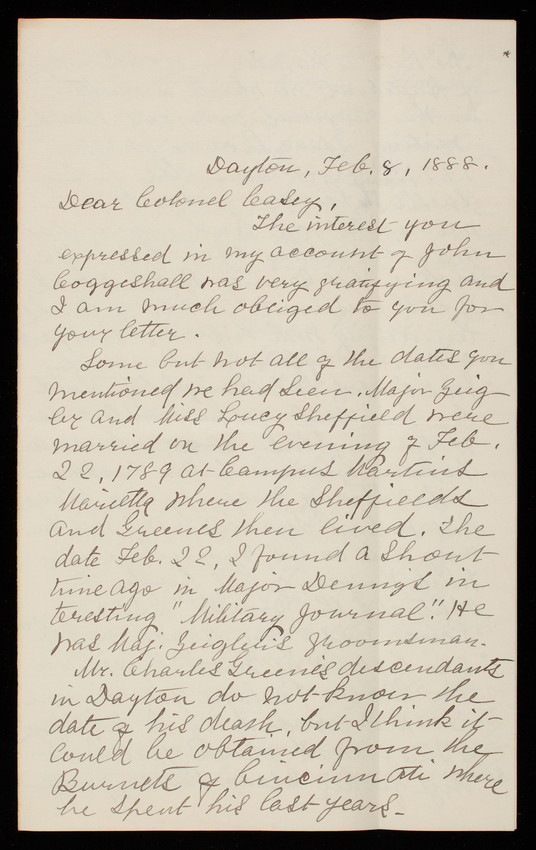 Dayton, Feb. 8, 1888.
Dear Colonel Casey,
The interest you
expressed in my account of John
Coggeshall was very gratifying and
I am much obliged to you for
your letter.
Some but not all of the dates you
mentioned we had seen. Major Zeig
ler and Miss Lucy Sheffield were
married on the evening of Feb.
22, 1789 at Campus Martius
Marietta where the Sheffields
and Greenes then lived. The
date Feb. 22, I found a short
time ago in Major Denny's in
teresting "Military Journal". He
was Maj. Zeigler's groomsman.
Mr. Charles Greene's descendants
in Dayton do not know the
date of his death, but I think it
could be obtained from the
Burnets of Cincinnati where
he spent his last years.